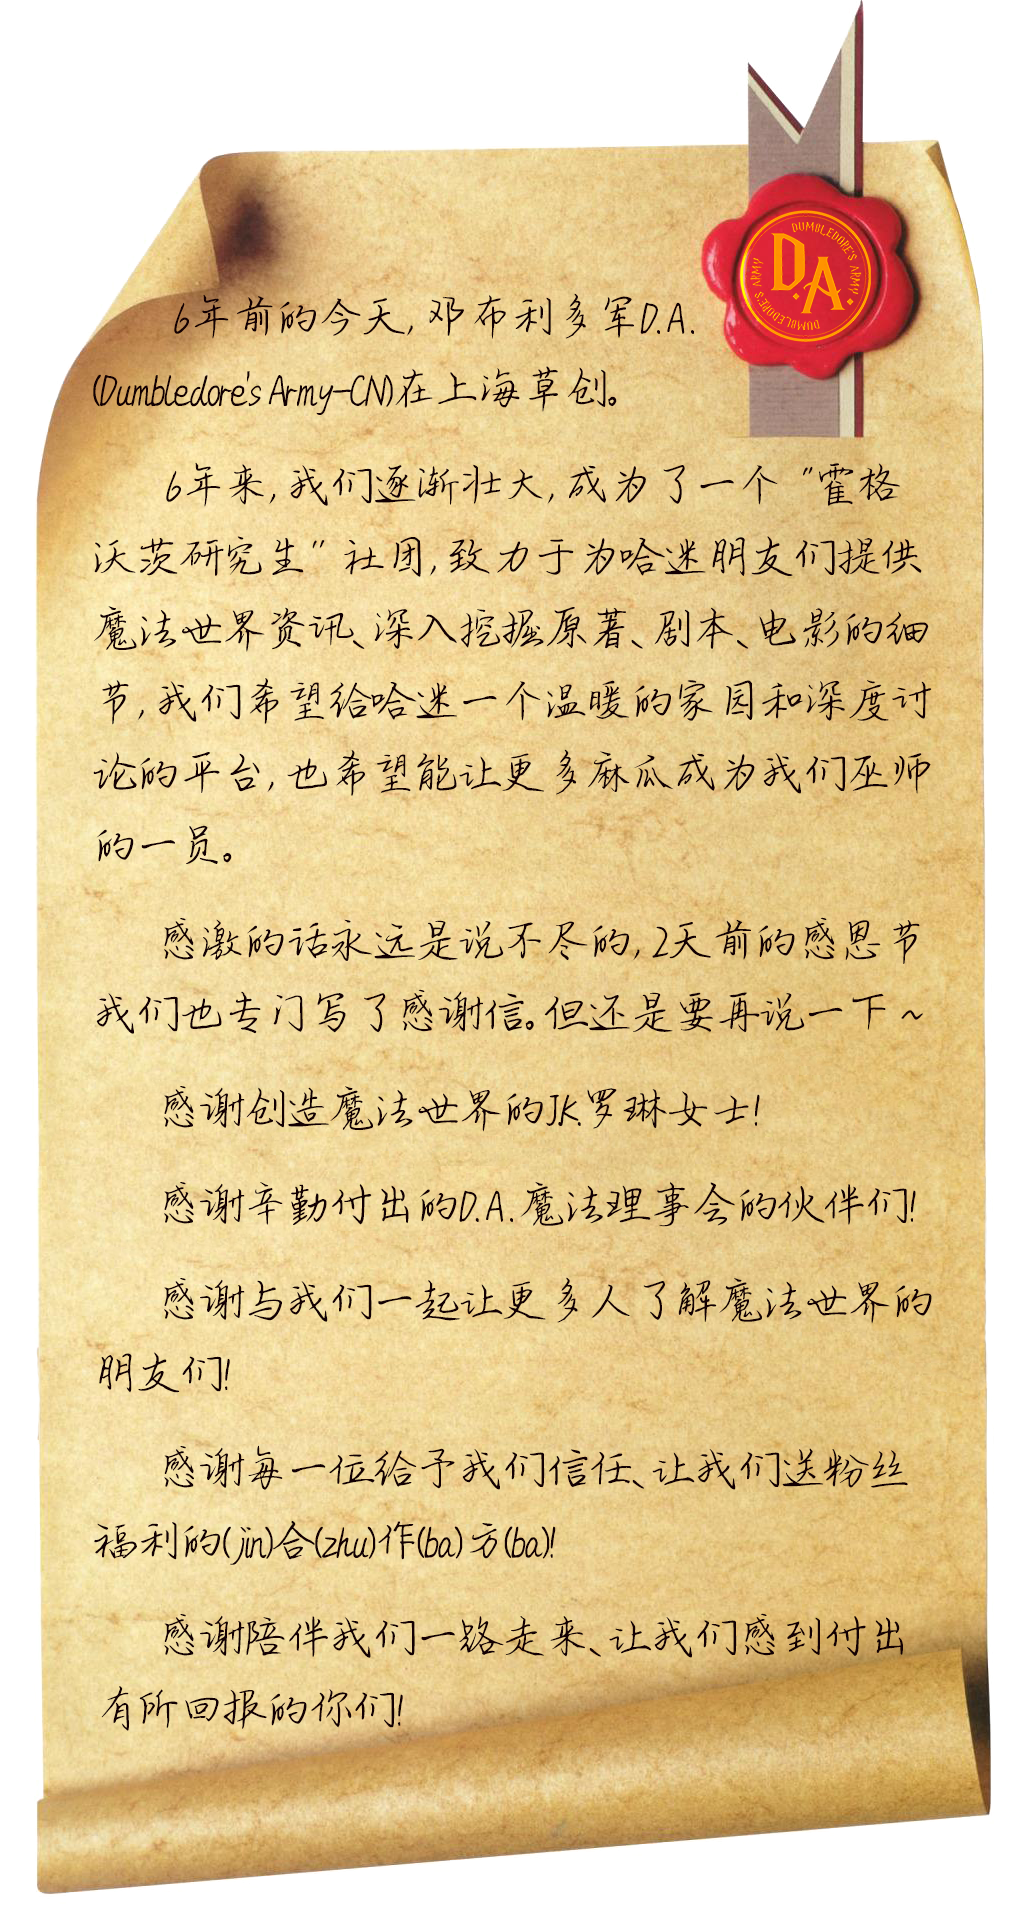 DUMBLEDORE'S ARMY
DUMBLEDORE'S ARMY
D.A.
6年前的今天,邓布利多军D.A.
(Dumbledore's Army-CN)在上海草创。
6年来,我们逐渐壮大,成为了一个“霍格
沃茨研究生”社团,致力于为哈迷朋友们提供
魔法世界资讯、深入挖掘原著、剧本、电影的细
节,我们希望给哈迷一个温暖的家园和深度讨
论的平台,也希望能让更多麻瓜成为我们巫师
的一员。
感激的话永远是说不尽的,2天前的感恩节
我们也专门写了感谢信。但还是要再说一下~
感谢创造魔法世界的J.K.罗琳女士!
感谢辛勤付出的D.A.魔法理事会的伙伴们!
感谢与我们一起让更多人了解魔法世界的
朋友们!
感谢每一位给予我们信任、让我们送粉丝
福利的(jin)合(zhu)作(ba)方(ba)!
感谢陪伴我们一路走来、让我们感到付出
有所回报的你们!